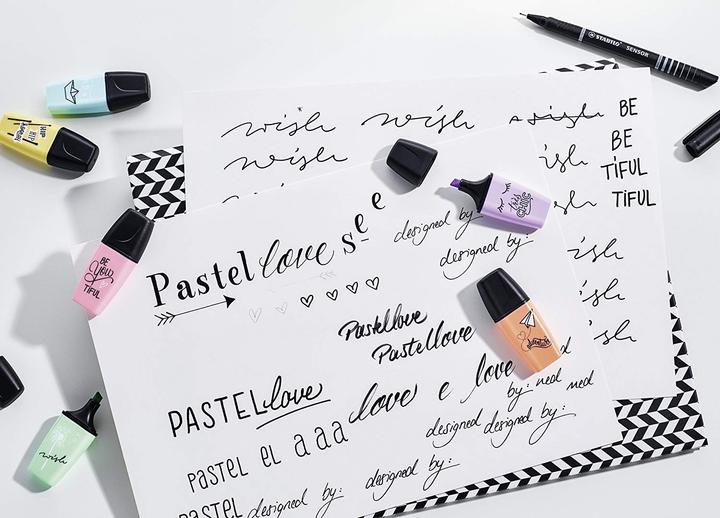 STABILO SENSOR
wish wish wish BE
wish wish BE
TiFUL
wish TiFUL
wish
wish
wish
HIP HIP HURRAY
BE YOU TiFUL
wish
Pastel love see
designed by:
designed by:
Pastellove
Pastellove
PASTELlove love e love
by: ned ned
PASTEL EL a a a designed designed by:
designed by:
PASTEL designed by: